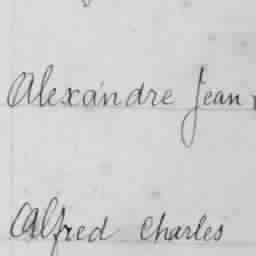 Alexandre Jean
Alfred Charles